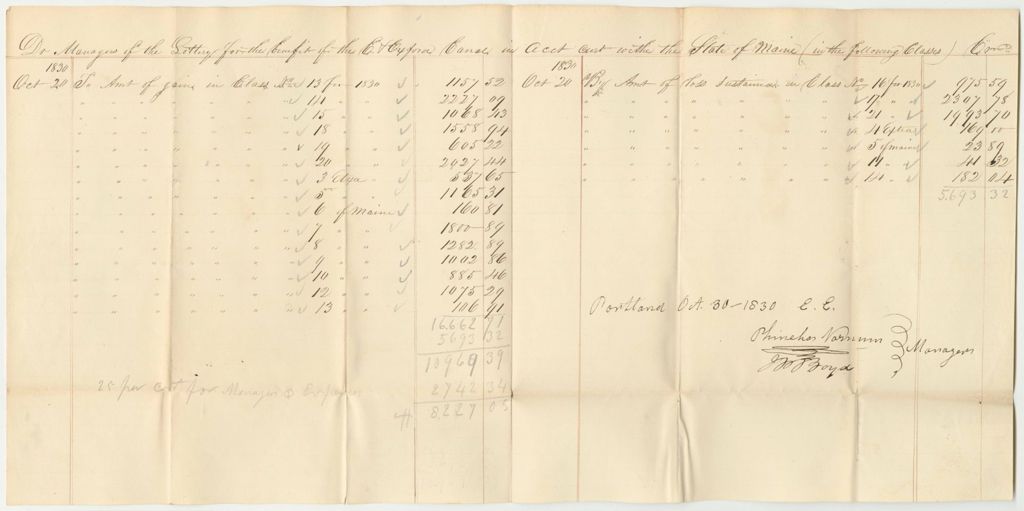 Dr Managers of the Lottery for the benefit of the C & Oxford Canal in acct curt withe the State of Maine (in the following Classes) Cr
1830
Oct 20 To Amt of gain in Class No 13 for 1830 1157 52
" " " " " " 14 " " 2227 09
" " " " " " 15 " " 1068 43
" " " " " " 18 " " 1558 94
" " " " " " 19 " " 605 22
" " " " " " 20 " " 2027 44
" " " " " " 3 Extra " 537 65
" " " " " " 5 " " 1165 31
" " " " " " 6 of Maine 160 81
" " " " " " 7 " " 1800 89
" " " " " " 8 " " 1282 89
" " " " " " 9 " " 1002 86
" " " " " " 10 " " 885 46
" " " " " " 12 " " 1075 29
" " " " " " 13 " " 106 91
16.662 71
5693 32
10969 39
25 per ct for Managers Expenses 2742 34
8.227 05
1830
Oct 20 By Amt of loss sustained in Class No 16 for 1830 975 59
" " " " " " 17 " " 2307 78
" " " " " " 21 " " 1993 70
" " " " " " 4 Extra 169 00
" " " " " " 5 of Maine 23 89
" " " " " " 11 " " 41 32
" " " " " " 14 " " 182 04
5.693 32
Portland Oct. 30 - 1830 E. E.
Phinehas Varnum
Managers
J P Boyd